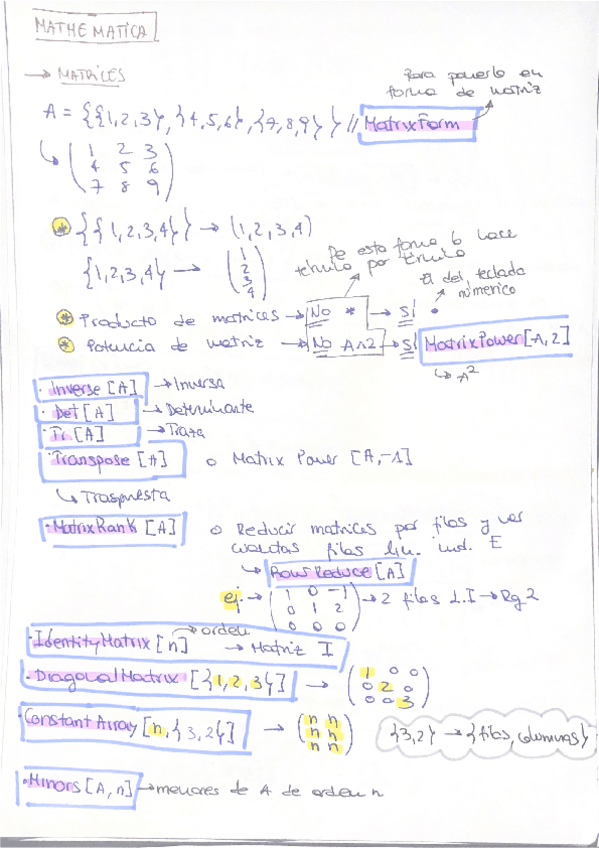 MATHEMATICA
→ MATRICES
Para ponerlo en
forma de matriz
A = {{1,2,3},{4,5,6},{7,8,9}} // MatrixForm
1 2 3
4 5 6
7 8 9
* {{1,2,3,4}} → (1,2,3,4)
De esta forma lo hace
término por término
{1,2,3,4} →
1
2
3
4
El del teclado
númerico
* Producto de matrices → No * → Sí •
* Potencia de matriz → No A^2 → Sí MatrixPower[A,2]
↳ A²
· Inverse [A] → Inversa
· Det [A] → Determinante
· Tr [A] → Traza
· Transpose [A] o Matrix Power [A,-1]
↳ Traspuesta
· MatrixRank [A] o Reducir matrices por filas y ver
cuantas filas lin. ind. E
↳ RowReduce [A]
ej. → 1 0 -1 → 2 filas L.I → Rg 2
0 1 2
0 0 0
→ orden
· IdentityMatrix [n] → Matriz I
· DiagonalMatrix [{1,2,3}] → 1 0 0
0 2 0
0 0 3
· Constant Array [n,{3,2}] → n n
n n
n n
{3,2} → {filas, columnas}
· Minors [A,n] → menores de A de orden n